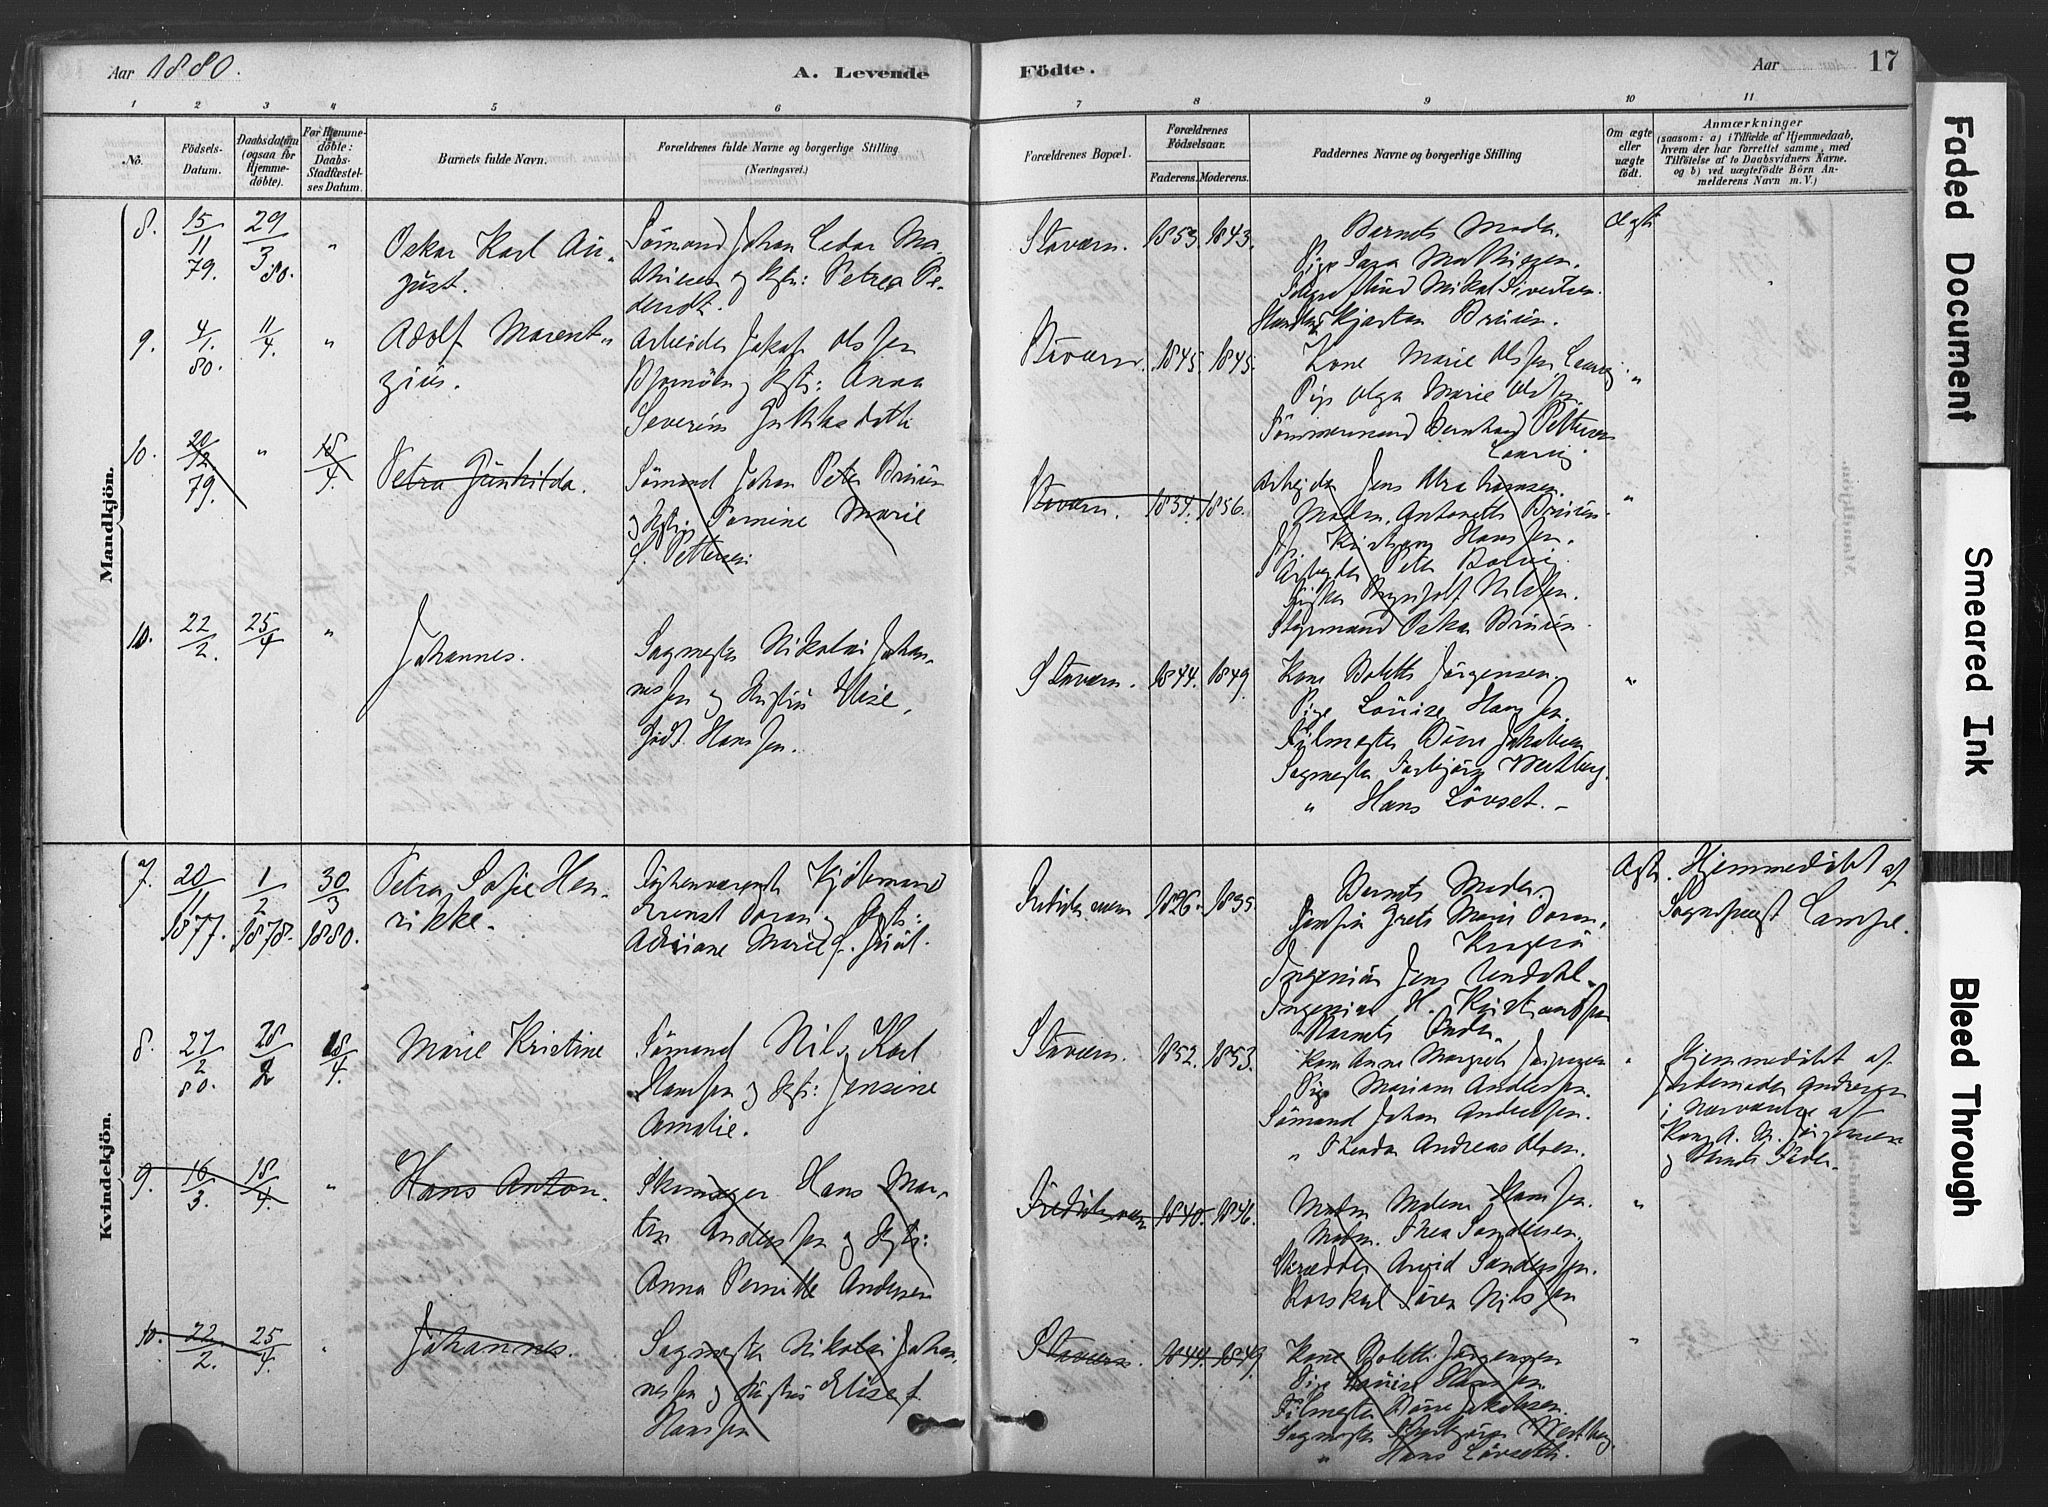 Aar 1880.
A. Levende
Födte.
Aar
17
1 2 3 4 5 6 7 8 9 10 11
No.
Födsels-
Datum.
Daabsdatum
(ogsaa for
Hjemme-
döbte).
For Hjemme-
döbte:
Daabs-
Stadfæstel-
ses Datum.
Barnets fulde Navn.
Forældrenes fulde Navne og borgerlige Stilling
(Næringsvei.)
Forældrenes Bopæl.
Forældrenes
Födselsaar.
Faderens. Moderens.
Faddernes Navne og borgerlige Stilling
Om ægte
eller
uægte
födt.
Anmærkninger
(saasom: a) i Tilfælde af Hjemmedaab,
hvem der har forrettet samme, med
Tilföielse af to Daabsvidners Navne.
og b) ved uægtefödte Börn An-
melderens Navn m. V.)
Mandkjön.
8.
15/11 79.
29/3 80.
"
Oskar Karl Au-
gust.
Sömand Johan
og Kst: Petrea Pe-
Staværn.
1853. 1843.
Barnets Moder.
Pige
Mikal Sivertsen.
Bruun.
Ægte
9.
4/1 80.
11/4.
"
Adolf Marent-
zius.
Arbeider Jakob Olsen
og Kst: Anna
Severine
Staværn.
1845. 1845.
Kone Marie Olsen, Laurvig
Pige Olga Marie Olsen.
Tömmermand Bernhard Pettersen
Laurvig.
"
10.
20/12 79.
"
18/4.
Petra Gunhilda.
Sömand Johan Peter Bruun
og Kst: Marie
f. Pettersen
Staværn.
1834. 1856.
Arbeider Jens Abrahamsen.
Madm. Antonette Bruun.
Hansen.
Arbeider Peter
Nilsen.
Styrmand Oskar Bruun.
"
10.
22/2.
25/4
"
Johannes.
Sagmester Nikolai Johan-
nesen og Hustru Elise,
födt Hansen.
Staværn.
1844. 1849.
Kone Bolette Jörgensen,
Pige Louise Hansen.
Filmester Jakobsen
Sagmester Torbjörn Westberg.
" Hans Lövset. -
"
Kvindekjön.
7.
20/11 1877.
1/2 1878.
30/3 1880.
Petra Sofie Hen-
rikke.
Kjöbmand
Doran og Kst:
Adriane Marie f. Juul.
Frideriksværn
1826. 1835.
Barnets Moder,
Grete Marie Doran,
Kragerö
Ingeniör Jens
Ingeniör H. Kristiansen
Barnets
Ægte.
Hjemmedöbt af
Sognepræst Lampe.
8.
27/2 80.
28/2
18/4.
Marie Kristine
Sömand Nils Karl
Hansen og Kst: Jensine
Amalie.
Staværn.
1852. 1853.
Kone Anne Margrete Jörgensen
Pige Mariane Andersen.
Sömand Johan Andersen.
" Andreas Olsen.
"
Hjemmedöbt af
Jordemoder Andersen
i Nærværelse af
Kone A. M. Jörgensen
og Barnets Fader.
9.
16/3
18/4.
"
Hans Anton.
Hans Mar-
tin Andersen og Kst:
Anna Pernille Andersen
Fredriksværn
1840. 1846.
Madm Hansen.
Madm. Thea Sandersen,
Skrædder Arvid Sandersen.
Sören Nilsen
"
10.
22/2.
25/4
"
Johannes.
Sagmester Nikolai Johan-
nesen og Hustru Elise f.
Hansen
Staværn.
1844. 1849.
Kone Bolette Jörgensen
Pige Louise Hansen.
Filmester Jakobsen.
Sagmester Torbjörn Westberg
" Hans Lövseth.
"
Faded Document
Smeared Ink
Bleed Through